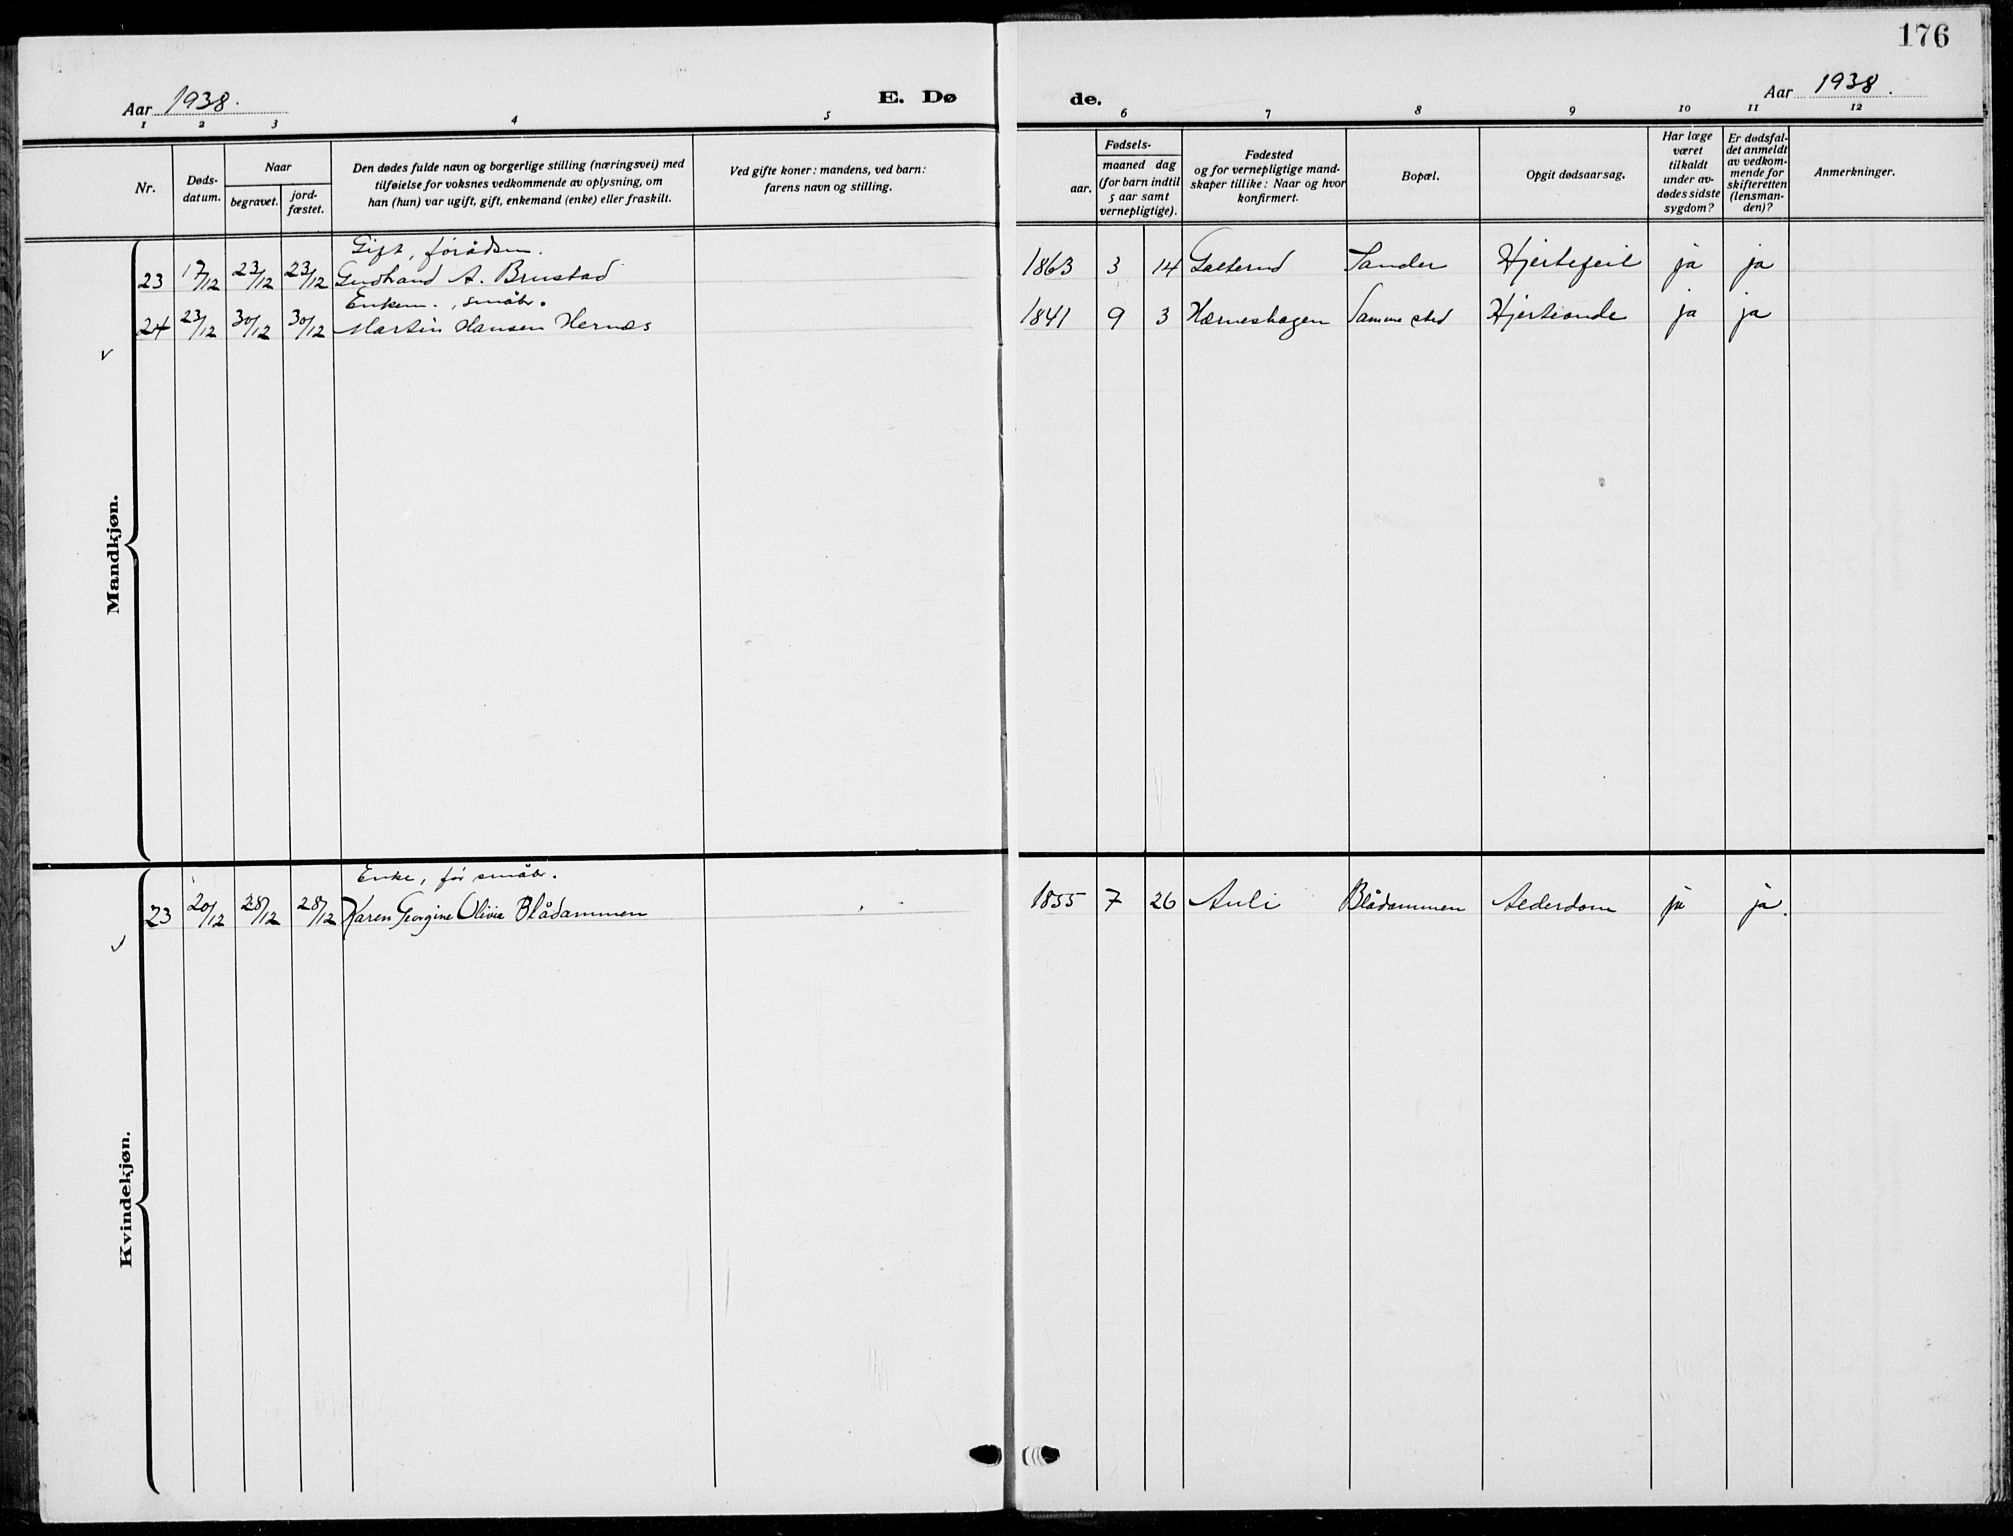 176
Aar 1938.
E. Dø
de.
Aar 1938.
1 2 3 4 5 6 7 8 9 10 11 12
Nr.
Døds-
datum.
Naar
begravet.
jord-
fæstet.
Den dødes fulde navn og borgerlige stilling (næringsvei) med
tilføielse for voksnes vedkommende av oplysning, om
han (hun) var ugift, gift, enkemand (enke) eller fraskilt.
Ved gifte koner: mandens, ved barn:
farens navn og stilling.
Fødsels-
aar.
maaned dag
(for barn indtil
5 aar samt
vernepligtige).
Fødested
og for vernepligtige mand-
skaper tillike: Naar og hvor
konfirmert.
Bopæl.
Opgit dødsaarsag.
Har læge
været
tilkaldt
under av-
dødes sidste
sygdom?
Er dødsfal-
det anmeldt
av vedkom-
mende for
skifteretten
(lensman-
den)?
Anmerkninger.
Mandkjøn.
Gift,førådsm.
23 17/12 23/12 23/12 Gudbrand A. Brustad 1863 3 14 Galterud Sander Hjertefeil ja ja
Enkem., småbr.
24 23/12 30/12 30/12 Martin Hansen Hernæs 1841 9 3 Hærneshagen Samme sted Hjerteonde ja ja
Kvindekjøn.
Enke, før småbr.
23 20/12 28/12 28/12 Karen Georgine Olivia Blådammen 1855 7 26 Auli Blådammen Alderdom ja ja.